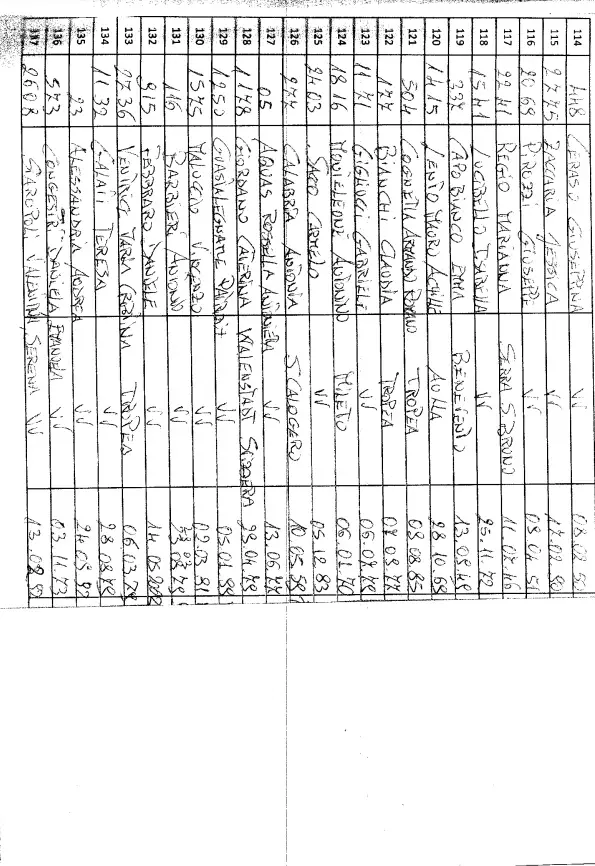 114 448 CERASO GIUSEPPINA VV 08.08.50
115 2775 ZACCARIA JESSICA VV 17.09.80
116 2068 PIROZZI GIUSEPPE VV 08.04.51
117 2241 REGIO MARIANNA SERRA S BRUNO 11.07.46
118 1541 VV 25.11.72
119 337 CAPOBIANCO EMMA BENEVENTO 13.08.48
120 1415 LENTO MAURO ACHILLE 28.10.68
121 504 COGNETTA ARMANDO ROMANO TROPEA 08.08.85
122 177 BIANCHI CLAUDIA TROPEA 07.08.77
123 1171 GIGLIUCI GABRIELE VV 06.07.78
124 1816 MONTELEONE ANTONINO MILETO 06.01.70
125 2403 SACO CARMELO VV 05.12.83
126 277 CALABRIA ANTONIA S CALOGERO 10.05.58
127 05 AGUAS ROSSELLA ANTONIETTA VV 13.06.77
128 1178 GIORDANO CATERINA WALENSTADT SVIZZERA 29.04.78
129 1250 GUASTALEGNAME VV 05.01.88
130 1575 MALUCCIO VINCENZO VV 02.03.81
131 116 BARBIERI ANTONIO VV
132 915 FEBBRARO DANIELE VV 14.05.2002
133 2736 VENTRICI TROPEA 06.03.78
134 1132 TERESA VV 28.08.78
135 23 ALESSANDRIA ANDREA VV 24.05.92
136 573 CONGESTRÌ DANIELA EMANUELA VV 03.11.73
137 2608 VALENTINA SERENA VV 13.08.82